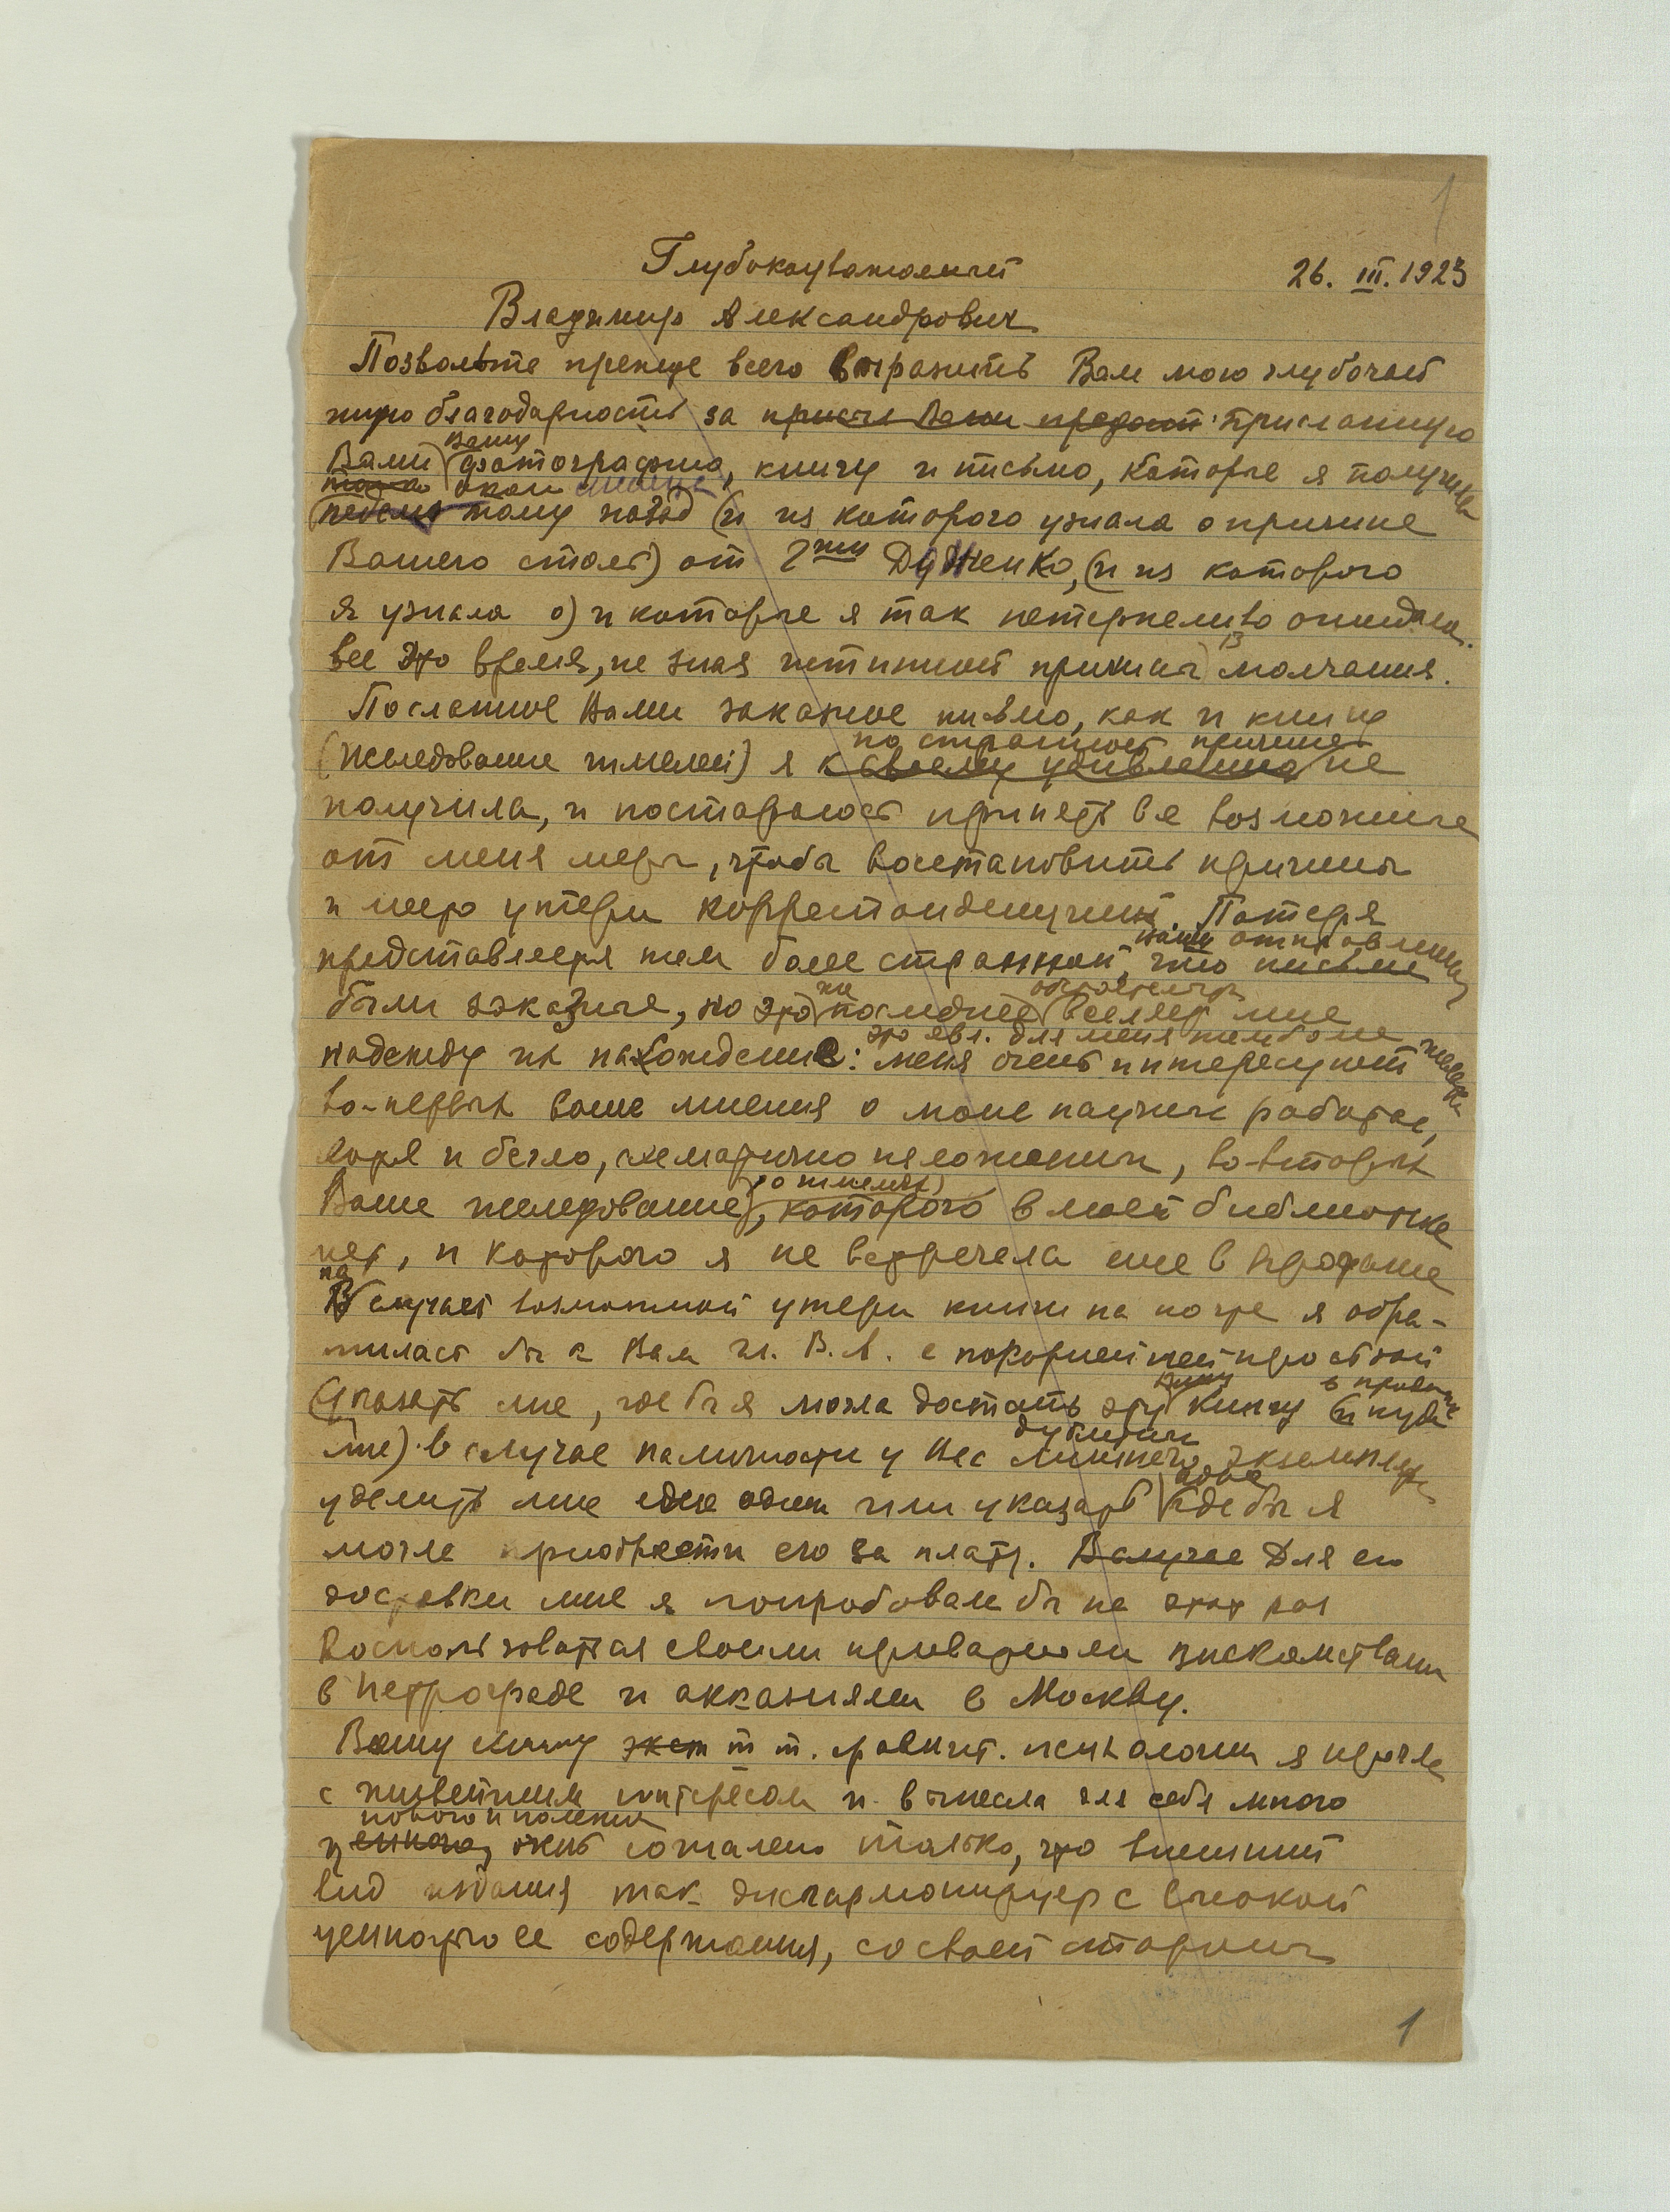 1
Глубокоуважаемый
26. III. 1923
Владимир Александрович
Позвольте прежде всего выразить Вам мою глубочай
шую благодарность за присланную
Вами Вашу фотографию, книгу и письмо, которые я получила
около
неделю тому назад (и из которого узнала о причине
Вашего) от Г-жи Дяженко, (и из которого
я узнала о) и которые я так нетерпеливо ожидала
все это время, не зная истинной причины молчания.
Посланное Вами заказное письмо, как и книгу
по странной причине
(Исследование шмелей) я к своему удивлению не
получила, и постараюсь принять все возможные
от меня меры, чтобы восстановить причины
и утери корреспонденции. Потеря
Ваши отправления
представляется тем более странной, что письма
же обстоятельство
были заказные, но это последнее вселяет мне
это явл. для меня тем более
надежду на нахождение: меня очень интересуют
во-первых ваше мнения о моих научных работах,
хотя и бегло, схематично изложенных, во-вторых
о шмелях)
Ваше исследование, которого в моей библиотеке
нет, и которого я не встречала еще в продаже
на
В случает возможной утери книги на почте я обра-
тилась бы к Вам гл. В. А. с покорнейшей просьбой
Вашу
указать мне, где бы я могла достать эту книгу
мне) в случае наличности у Вас лишнего экземпляра
уделить мне один или указать где бы я
могла приобрести его за плату. В случае Для ее
доставки мне я попробовала бы на этот раз
воспользоваться своими приватными знакомствами
в Петрограде и оказиями в Москву.
Вашу книгу по сравнит. психологии я прочла
с живейшим интересом и вынесла для себя много
нового и полезного
ценного, очень сожалею только, что внешний
вид издания так дисгармонирует с высокой
ценностью ее содержания, со своей стороны
1